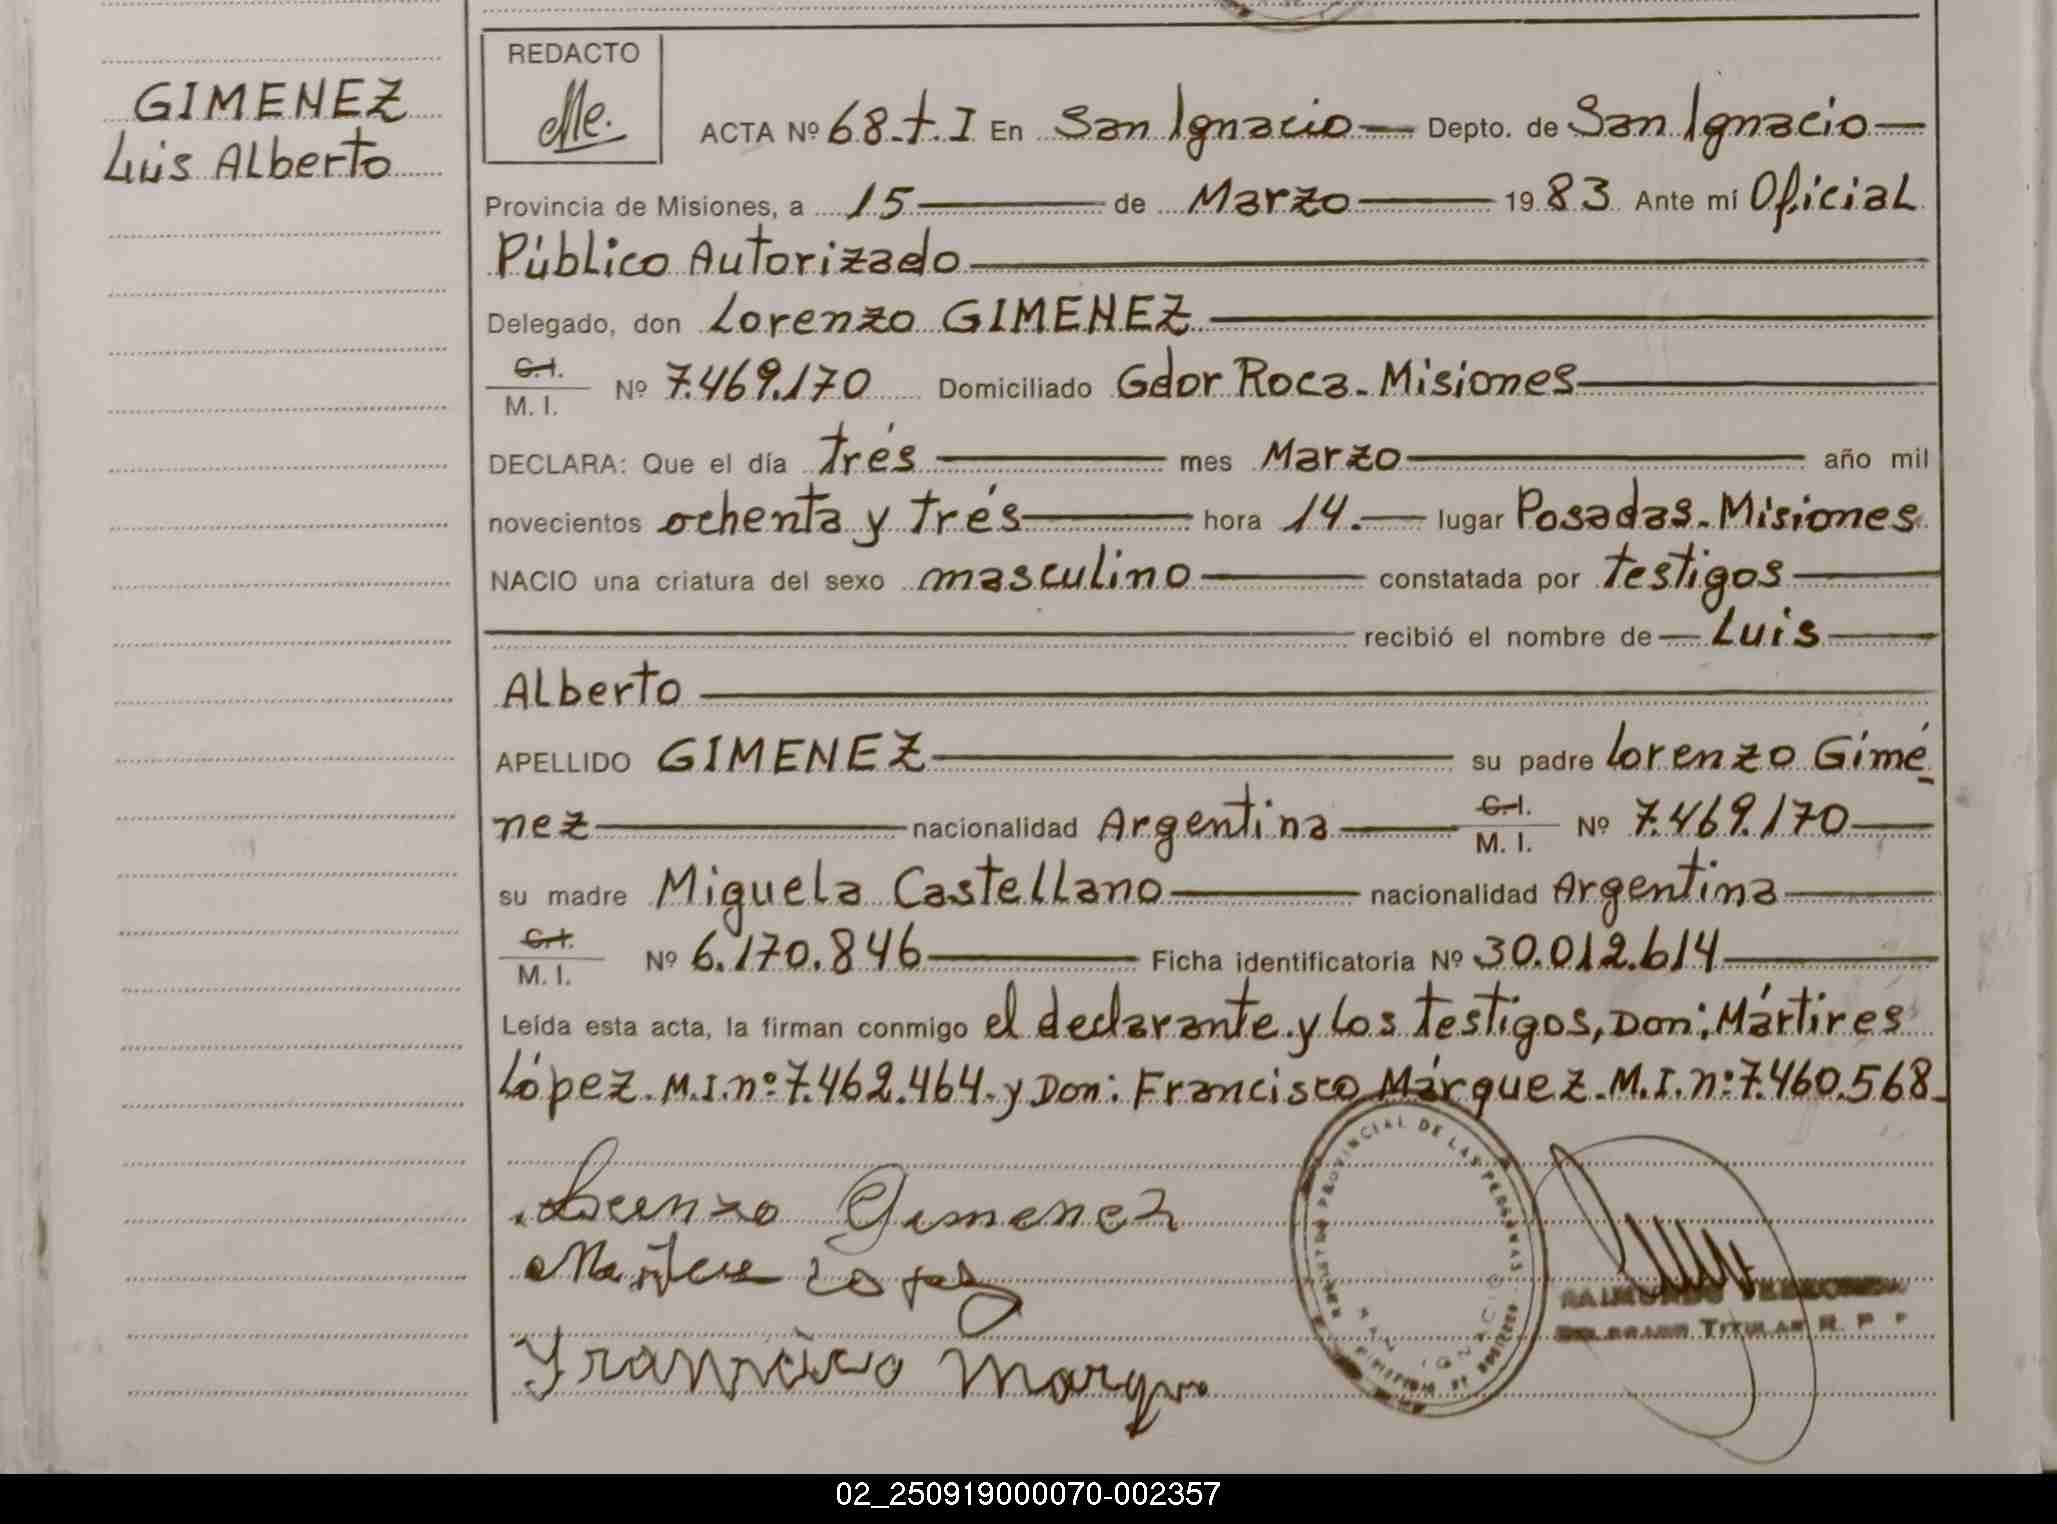 GIMENEZ
Luis Alberto
REDACTO
ACTA Nº 68-t.I En San Ignacio Depto. de San Ignacio
Provincia de Misiones, a 15 de Marzo 1983 Ante mí Oficial
Público Autorizado
Delegado, don Lorenzo GIMENEZ
C.I.
M. I. Nº 7.469.170 Domiciliado Gdor Roca - Misiones
DECLARA: Que el día trés mes Marzo año mil
novecientos ochenta y trés hora 14.- lugar Posadas - Misiones
NACIO una criatura del sexo masculino constatada por testigos
recibió el nombre de Luis
Alberto
APELLIDO GIMENEZ su padre Lorenzo Gimé
nez nacionalidad Argentina C.I. M. I. Nº 7.469.170
su madre Miguela Castellano nacionalidad Argentina
C.I.
M. I. Nº 6.170.846 Ficha identificatoria Nº 30.012.614
Leída esta acta, la firman conmigo el declarante y los testigos, Don: Mártires
López. M.I. nº: 7.462.464. y Don: Francisco Márquez. M.I. nº: 7.460.568
Lorenzo Gimenez
REGISTRO PROVINCIAL DE LAS PERSONAS
SAN IGNACIO
RAIMUNDO
DELEGADO TITULAR R. P. P
02_250919000070-002357